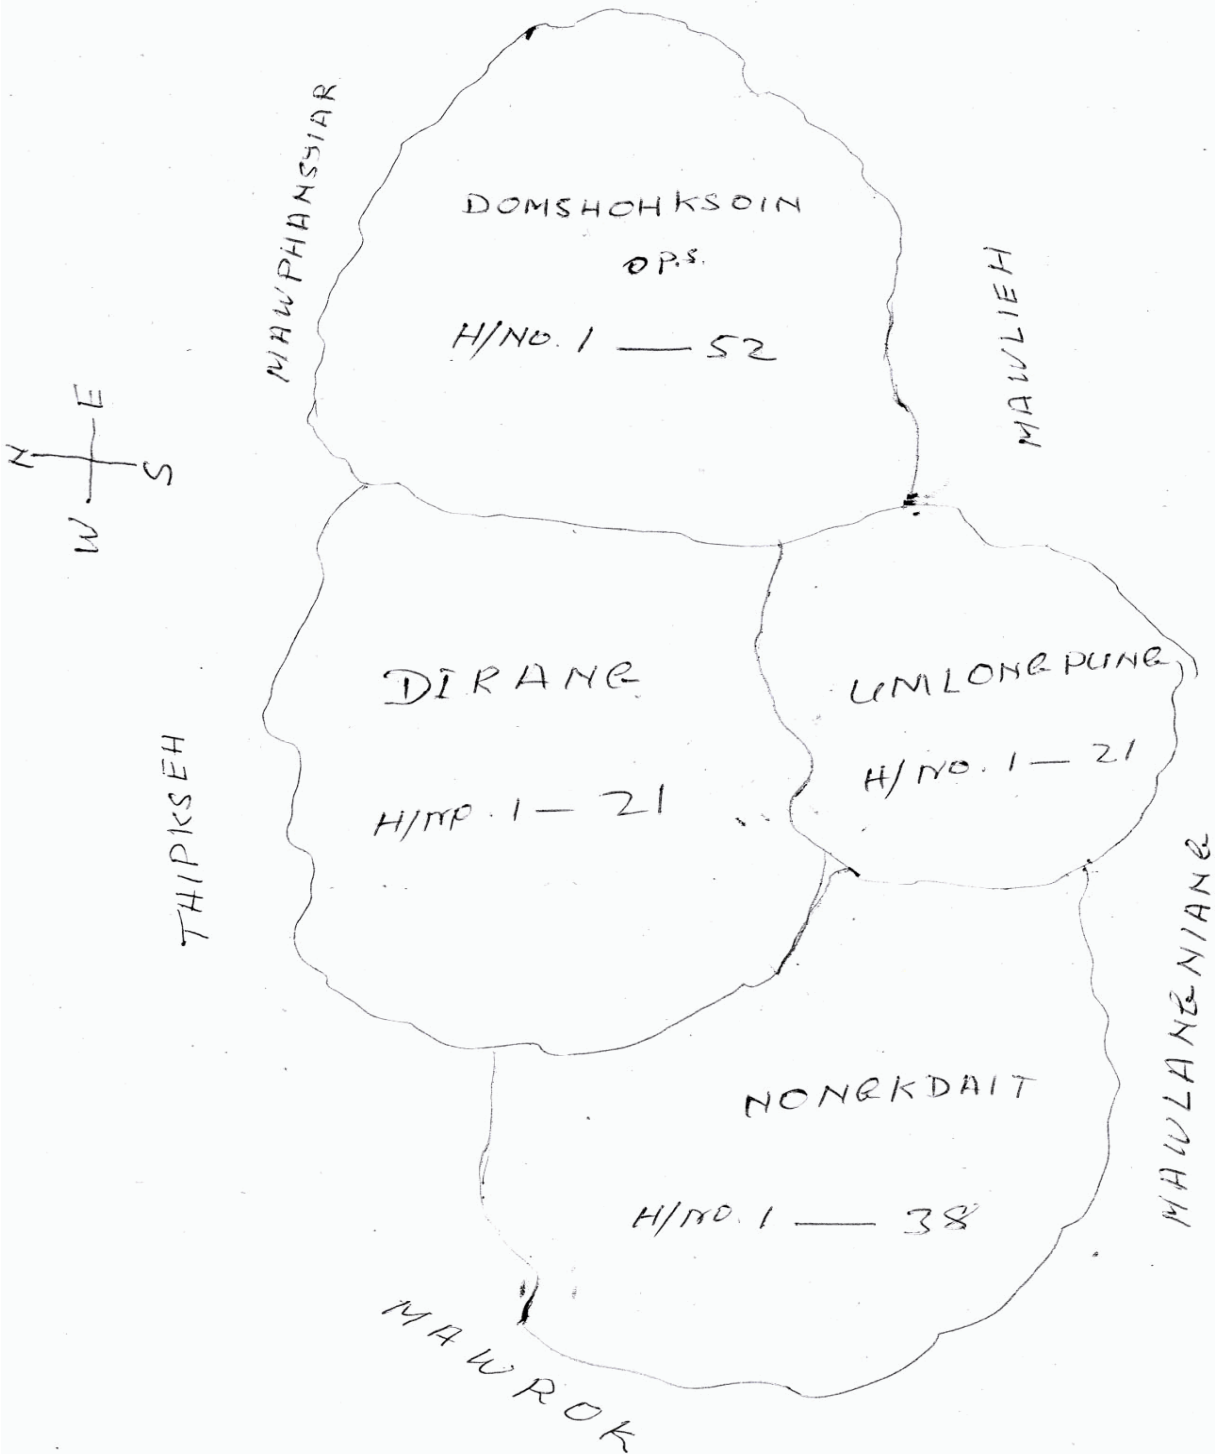 MAWPHANSYIAR
DOMSHOHKSOIN
O P.S.
H/NO. 1 — 52
MAWLIEH
N
E
S
W
DIRANG
H/NO. 1 — 21
UMLONGPUNG
H/NO. 1 — 21
THIPKSEH
MAWLANGNIANG
NONGKDAIT
H/NO. 1 — 38
MAWROK